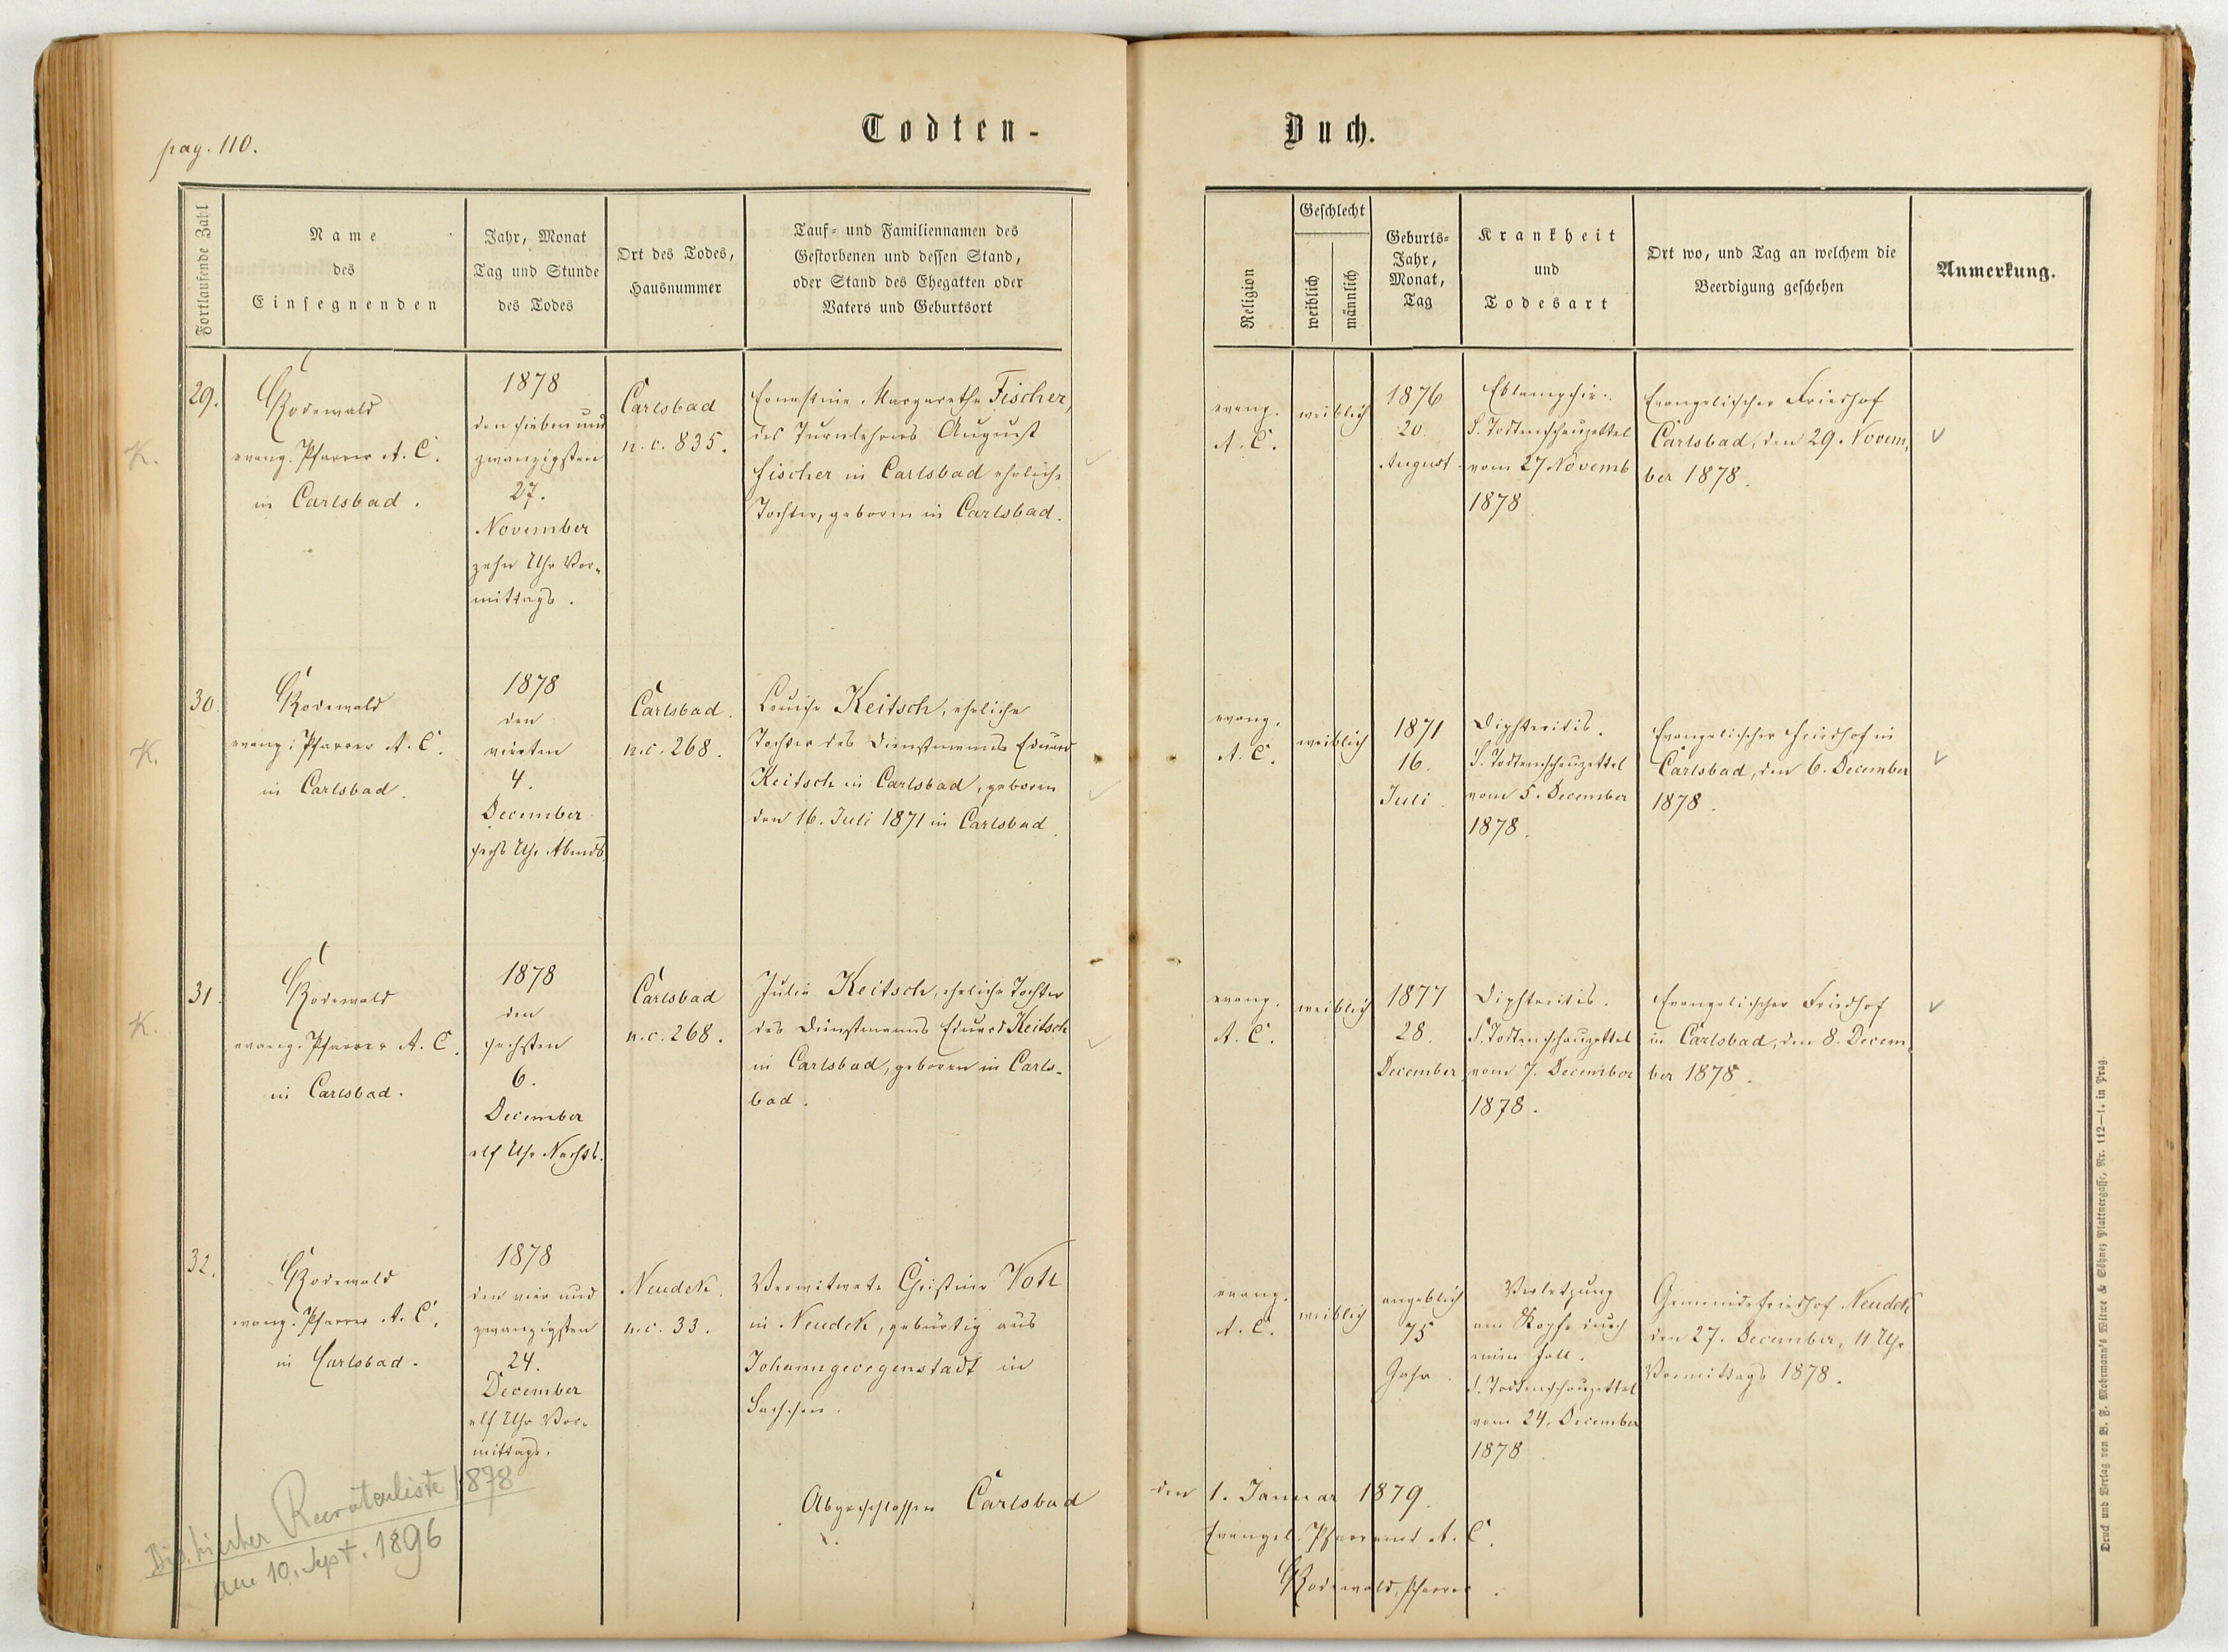 pag. 110.
Todten-
Buch.
Fortlaufende Zahl
Name
des
Einsegnenden
Jahr, Monat
Tag und Stunde
des Todes
Ort des Todes,
Hausnummer
Tauf- und Familiennamen des
Gestorbenen und dessen Stand,
oder Stand des Ehegatten oder
Vaters und Geburtsort
Religion
Geschlecht
weiblich
männlich
Geburts-
Jahr,
Monat,
Tag
Krankheit
und
Todesart
Ort wo, und Tag an welchem die
Beerdigung geschehen
Anmerkung.
K.
29.
Rodewald
evang. Pfarrer A. C.
in Carlsbad.
1878
den sieben und
zwanzigsten
27.
November
zehn Uhr Vor-
mittags.
Carlsbad
n.c. 835.
Ernestine Margarethe Fischer,
des Turnlehrers August
Fischer in Carlsbad eheliche
Tochter, geboren in Carlsbad.
evang.
A. C.
weiblich
1876
20.
August.
Eklampsie.
S. Todtenschauzettel
vom 27 Novemb
1878
Evangelischer Friedhof
Carlsbad, den 29. Novem-
ber 1878.
K.
30.
Rodewald
evang. Pfarrer A. C.
in Carlsbad.
1878
den
vierten
4.
December
sechs Uhr Abends.
Carlsbad.
n.c. 268.
Louise Keitsch, eheliche
Tochter des Dienstmannes Eduard
Keitsch in Carlsbad, geboren
den 16. Juli 1871 in Carlsbad.
evang.
A. C.
weiblich
1871
16.
Juli.
Diphteritis.
S. Todtenschauzettel
vom 5. December
1878.
Evangelischer Friedhof in
Carlsbad, den 6. December
1878.
K.
31.
Rodewald
evang. Pfarrer A. C.
in Carlsbad.
1878
den
sechsten
6.
December
elf Uhr Nachts.
Carlsbad
n.c. 268.
Julie Keitsch, eheliche Tochter
des Dienstmanns Eduard Keitsch
in Carlsbad, geboren in Carls-
bad.
evang.
A. C.
weiblich
1877
28.
December
Diphteritis.
S. Todtenschauzettel
vom 7. December
1878.
Evangelischer Friedhof
in Carlsbad, den 8. Decem-
ber 1878.
32.
Rodewald
evang. Pfarrer A. C.
in Carlsbad.
1878
den vier und
zwanzigsten
24.
December
elf Uhr Vor-
mittags.
Neudek.
n.c. 33.
Verwitwete Christine
in Neudek, gebürtig aus
Johanngeorgenstadt in
Sachsen.
evang.
A. C.
weiblich
angeblich
75
Jahr.
Verletzung
am Kopfe durch
einen Fall.
S. Todtenschauzettel
vom 24. December
1878.
Gemeindefriedhof Neudek
den 27. December, 11 Uhr
Vormittags 1878.
Abgeschlossen Carlsbad den 1. Januar 1879.
Evangel. Pfarramt A. C.
Rodewald, Pfarrer.
Bis hierher Recrutenliste 1878
am 10. Sept. 1896
Druck und Verlag von B. F. Mohrmann's Witwe & Söhne; Plattnergasse, Nr. 112—1. in Prag.